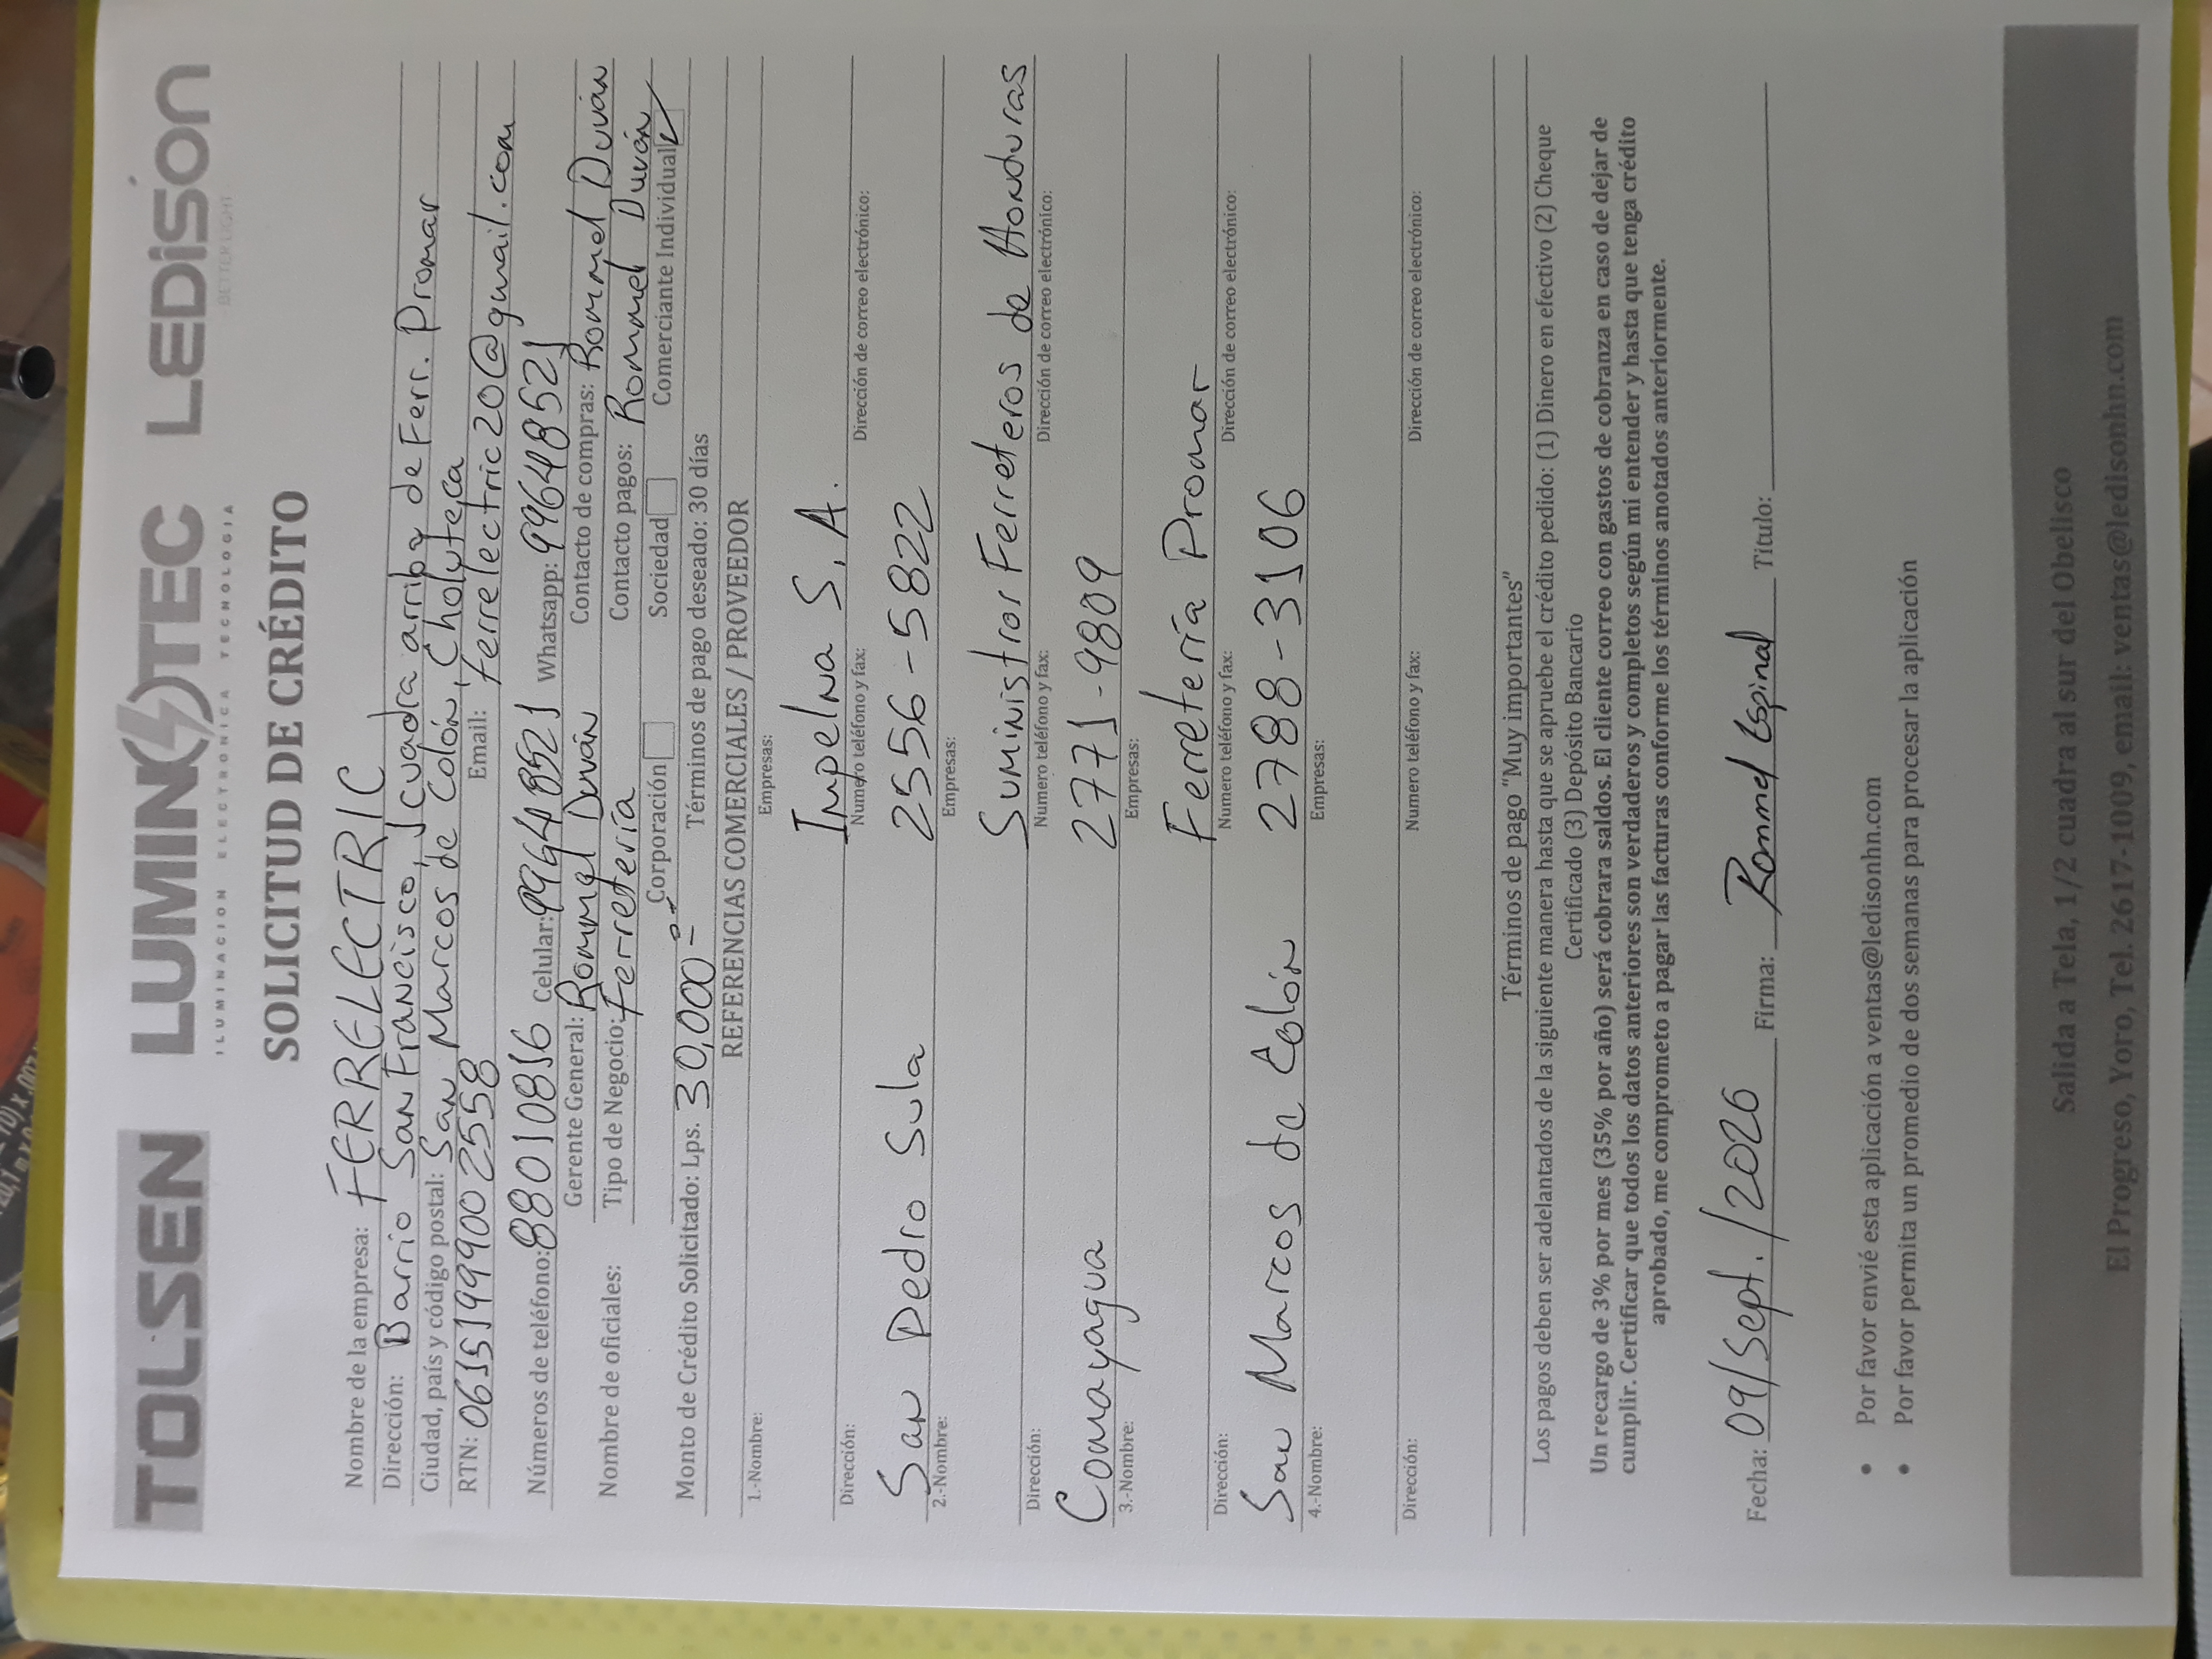 TOLSEN LUMINOTEC LEDISON
ILUMINACION ELECTRONICA TECNOLOGIA BETTER LIGHT
SOLICITUD DE CRÉDITO
Nombre de la empresa: FERRELECTRIC
Dirección: Barrio San Francisco, 1 cuadra arriba de Ferr. Promar
Ciudad, país y código postal: San Marcos de Colón, Choluteca
RTN: 06151999002558 Email: ferrelectric20@gmail.com
Números de teléfono: 88010816 Celular: 99648521 Whatsapp: 99648521
Gerente General: Rommel Duván Contacto de compras: Rommel Duván
Nombre de oficiales: Tipo de Negocio: Ferretería Contacto pagos: Rommel Duván
Corporación Sociedad Comerciante Individual ✓
Monto de Crédito Solicitado: Lps. 30,000.00 Términos de pago deseado: 30 días
REFERENCIAS COMERCIALES / PROVEEDOR
1.-Nombre: Empresas:
Impelna S. A.
Dirección: Numero teléfono y fax: Dirección de correo electrónico:
San Pedro Sula 2556-5822
2.-Nombre: Empresas:
Suministros Ferreteros de Honduras
Dirección: Numero teléfono y fax: Dirección de correo electrónico:
Comayagua 2771-9809
3.-Nombre: Empresas:
Ferretería Promar
Dirección: Numero teléfono y fax: Dirección de correo electrónico:
San Marcos de Colón 2788-3106
4.-Nombre: Empresas:
Dirección: Numero teléfono y fax: Dirección de correo electrónico:
Términos de pago “Muy importantes”
Los pagos deben ser adelantados de la siguiente manera hasta que se apruebe el crédito pedido: (1) Dinero en efectivo (2) Cheque
Certificado (3) Depósito Bancario
Un recargo de 3% por mes (35% por año) será cobrara saldos. El cliente correo con gastos de cobranza en caso de dejar de
cumplir. Certificar que todos los datos anteriores son verdaderos y completos según mi entender y hasta que tenga crédito
aprobado, me comprometo a pagar las facturas conforme los términos anotados anteriormente.
Fecha: 09/Sept./2026 Firma: Rommel Espinal Titulo:
• Por favor envié esta aplicación a ventas@ledisonhn.com
• Por favor permita un promedio de dos semanas para procesar la aplicación
Salida a Tela, 1/2 cuadra al sur del Obelisco
El Progreso, Yoro, Tel. 2617-1009, email: ventas@ledisonhn.com